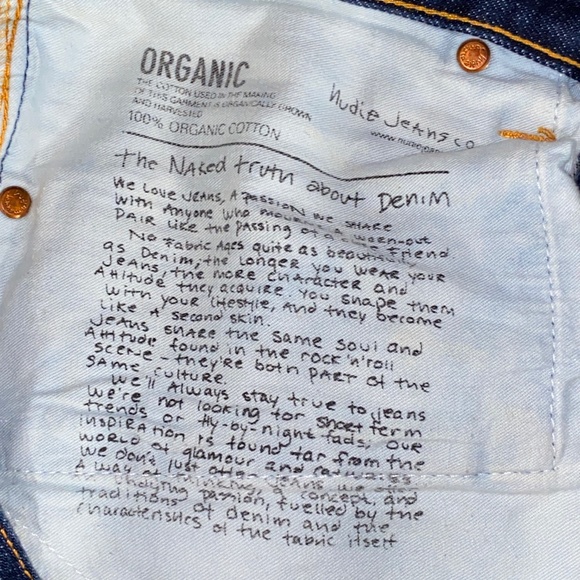 ORGANIC
THE COTTON USED IN THE MAKING
OF THIS GARMENT IS ORGANICALLY GROWN
AND HARVESTED
100% ORGANIC COTTON
nudie Jeans co
www.nudie
the NAKed truth about DeniM
We Love JeANs, A pAssion we sHARe
with Anyone who mourns a worn-out
PAIR Like the pAssing of a friend
No fabric Ages quite as beautifully
as Denim; the Longer you weAr your
Jeans, the more cHArActer and
Attitude they Acquire. You shape them
with your lifestyle, And they become
Like A second skin.
JeANs sHARe the same soul and
Attitude found in the rock'n'roll
scene - they're both pARt of the
sAme culture.
We'll Always stay true to jeans
We're not looking for short term
trends or fly-by-night fads, our
inspiRAtion is found far from the
world of glamour and
We don't just offer jeans we offer
A way of thinking, a concept, and
undying passion, fuelled by the
traditions of denim and the
cHaracteristics of the fabric itself